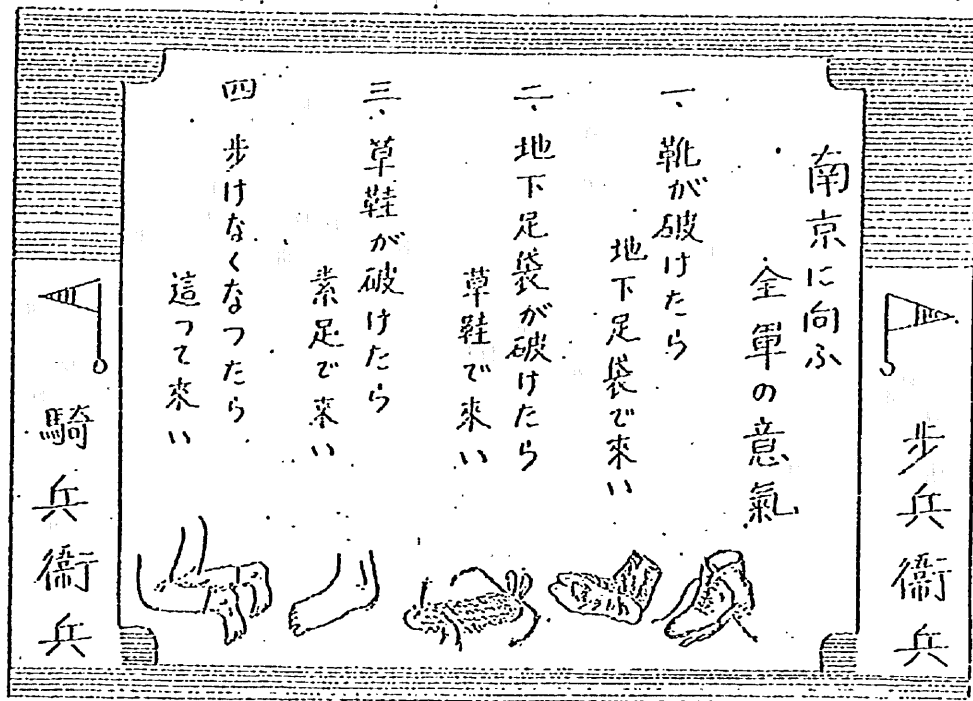 歩兵衞兵
南京に向ふ
全軍の意氣
一、靴が破けたら
地下足袋で來い
二、地下足袋が破けたら
草鞋で來い
三、草鞋が破けたら
素足で來い
四 歩けなくなつたら
這つて來い
騎兵衞兵